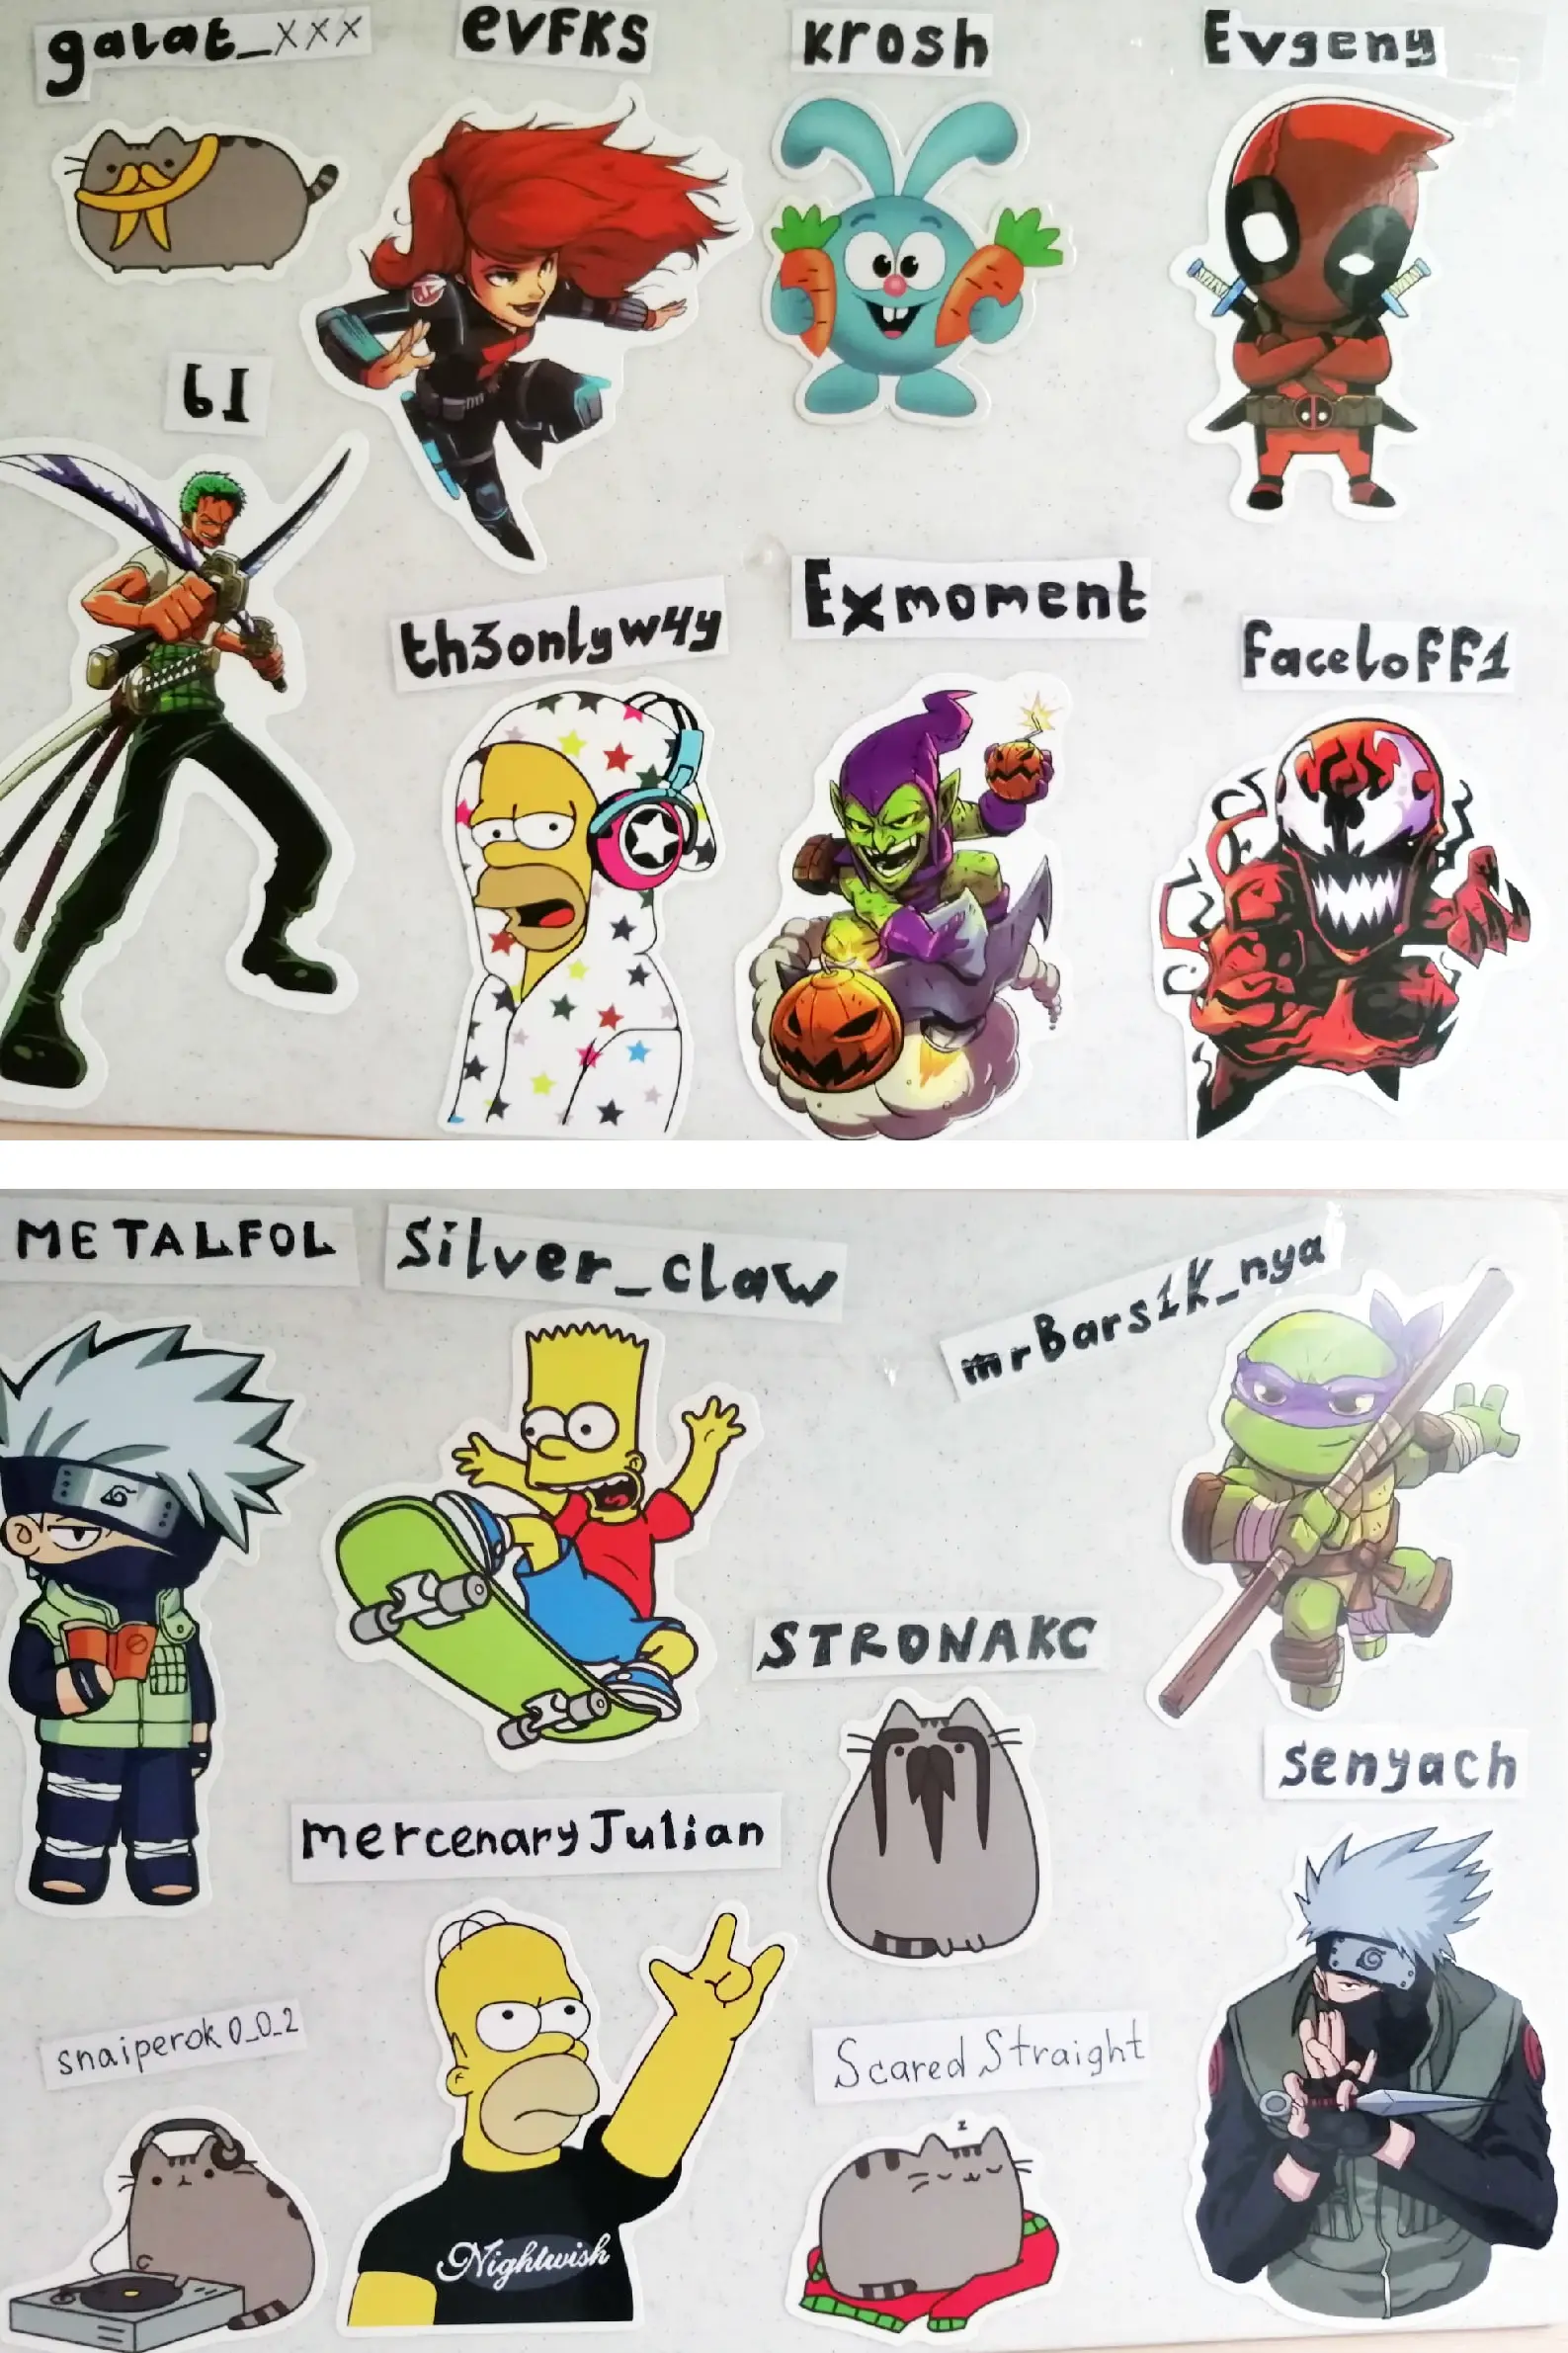 galat_xxx
evFKS
krosh
Evgeny
th3onlyw4y
Exmoment
faceloFF1
METALFOL
Silver_claw
mrBars1K_nya
STRONAKC
senyach
mercenaryJulian
snaiperok0_0_2
Scared Straight
z
Nightwish